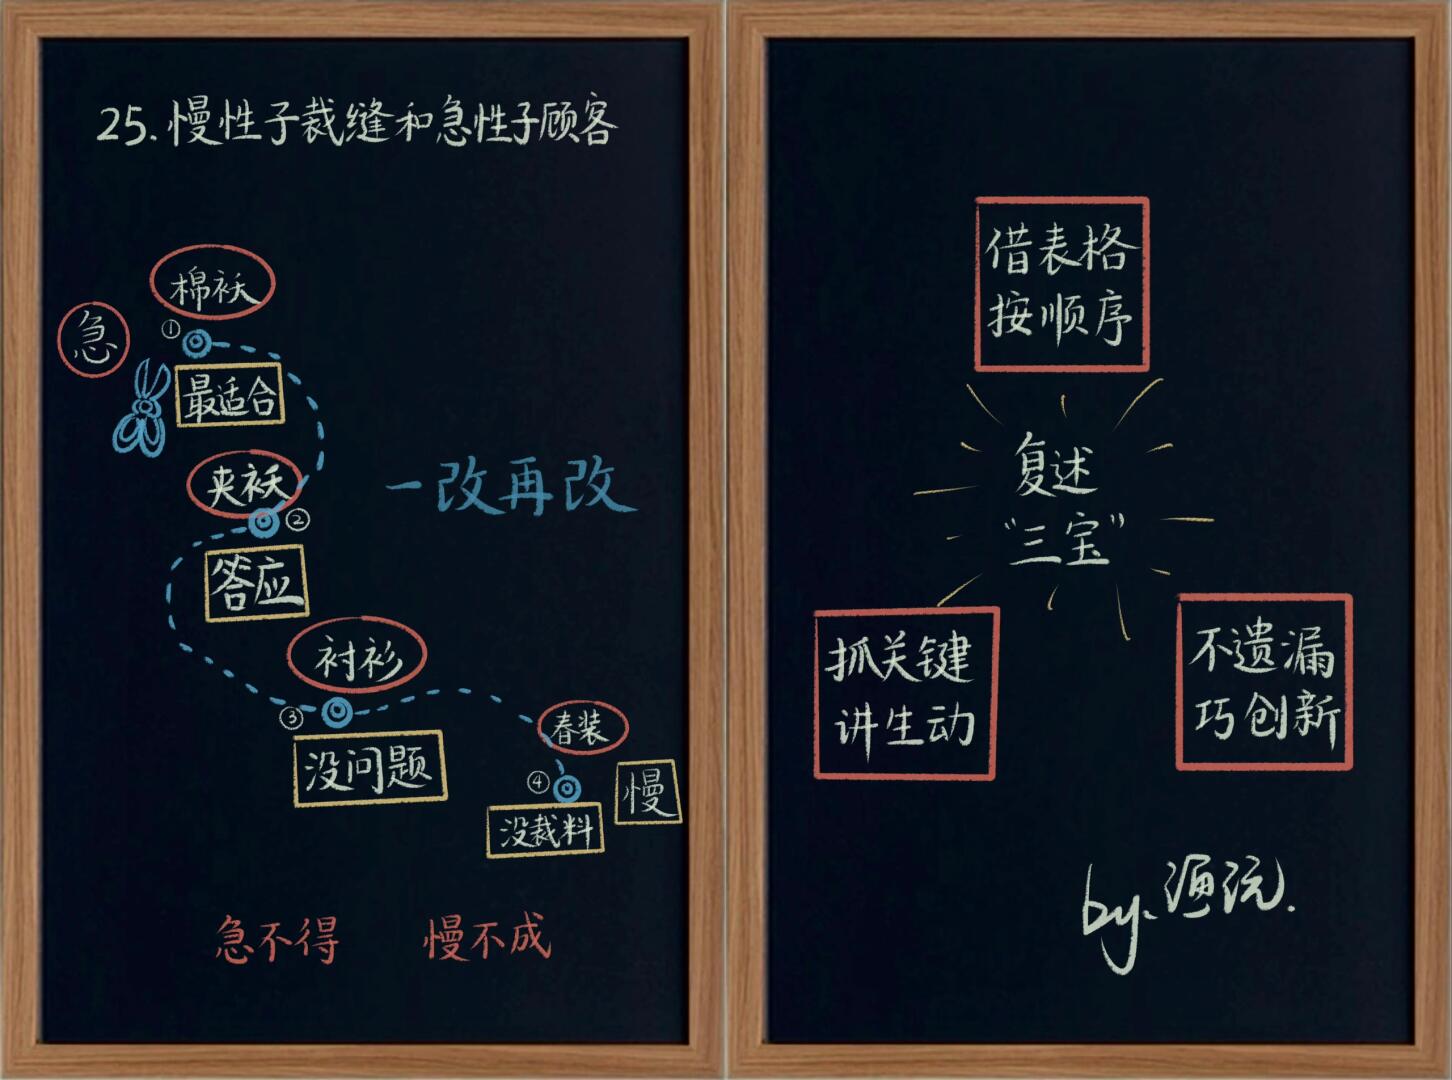 25.慢性子裁缝和急性子顾客
棉袄
急
①
最适合
夹袄
②
答应
一改再改
衬衫
③
没问题
春装
④
慢
没裁料
急不得 慢不成
借表格
按顺序
复述
“三宝”
抓关键
讲生动
不遗漏
巧创新
by.